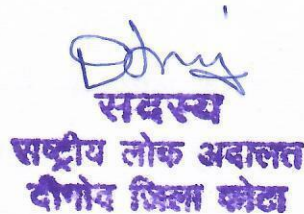 सदस्य
राष्ट्रीय लोक अदालत
दीगोद जिला कोटा